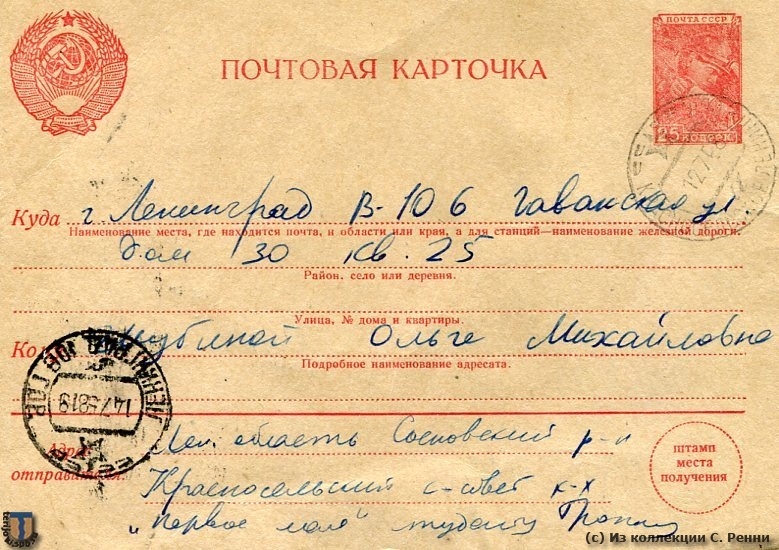 ПОЧТА СССР
25 КОПЕЕК
ПОЧТОВАЯ КАРТОЧКА
Куда г. Ленинград В-106 Гаванская ул
Наименование места, где находится почта, и области или края, а для станций—наименование железной дороги.
Дом 30 кв. 25
Район, село или деревня.
Улица, № дома и квартиры.
Ольге Михайловне
Подробное наименование адресата.
ЛЕНИНГРАД
1475819
СССР
Адрес Лен область Сосновский р-н
отправителя: Красносельский с-совет к-х
„Первое мая" студенту
штамп
места
получения
(c) Из коллекции С. Ренни
terijoki.spb.ru